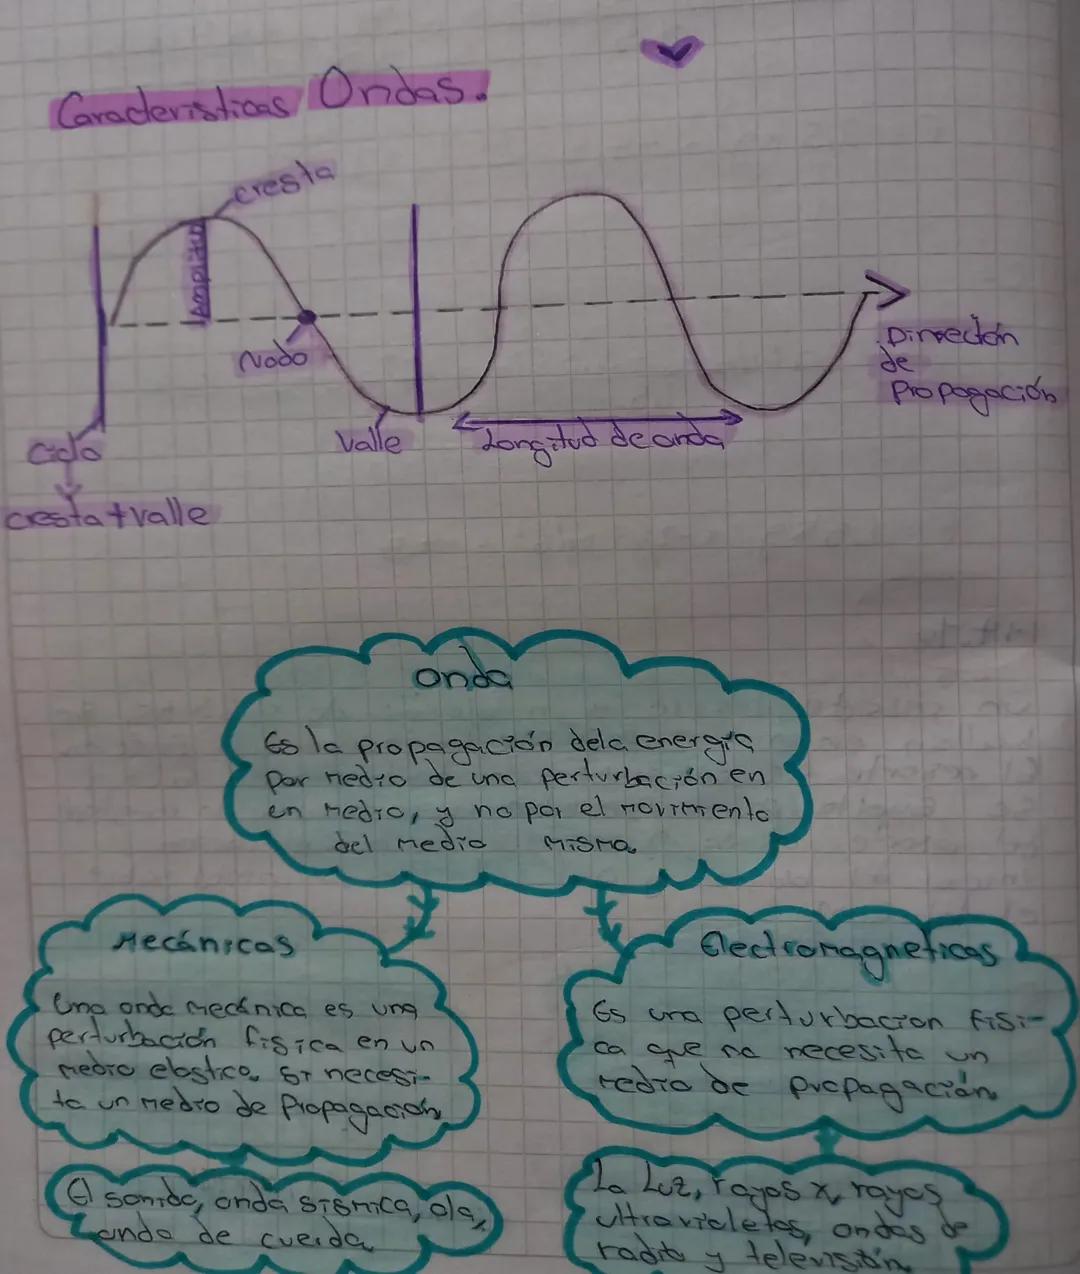 Características Ondas.
cresta
Amplitud
Nodo
Dirección
de
Propagación
Ciclo
Valle
Longitud de onda
cresta + valle
onda
Es la propagación dela energía
por medio de una perturbación en
en medio, y no por el movimiento
del medio misma.
Mecánicas
Electromagneticas
Una onda mecánica es una
perturbación física en un
medio elastico. Si necesi-
ta un medio de Propagación.
Es una perturbacion fisi-
ca que no necesita un
medio de propagación.
El sonido, onda sísmica, ola,
onda de cuerda.
La Luz, rayos x, rayos
ultravioletas, ondas de
radio y televisión.